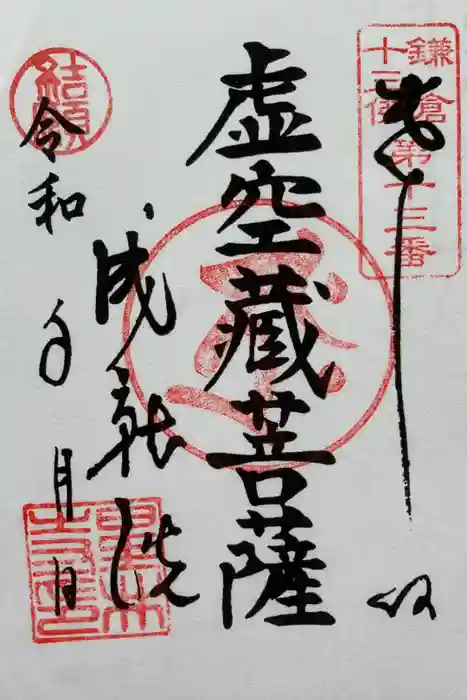 鎌倉
十三佛
第十三番
奉拝
虚空蔵菩薩
成就院
結願
令和 年 月 日